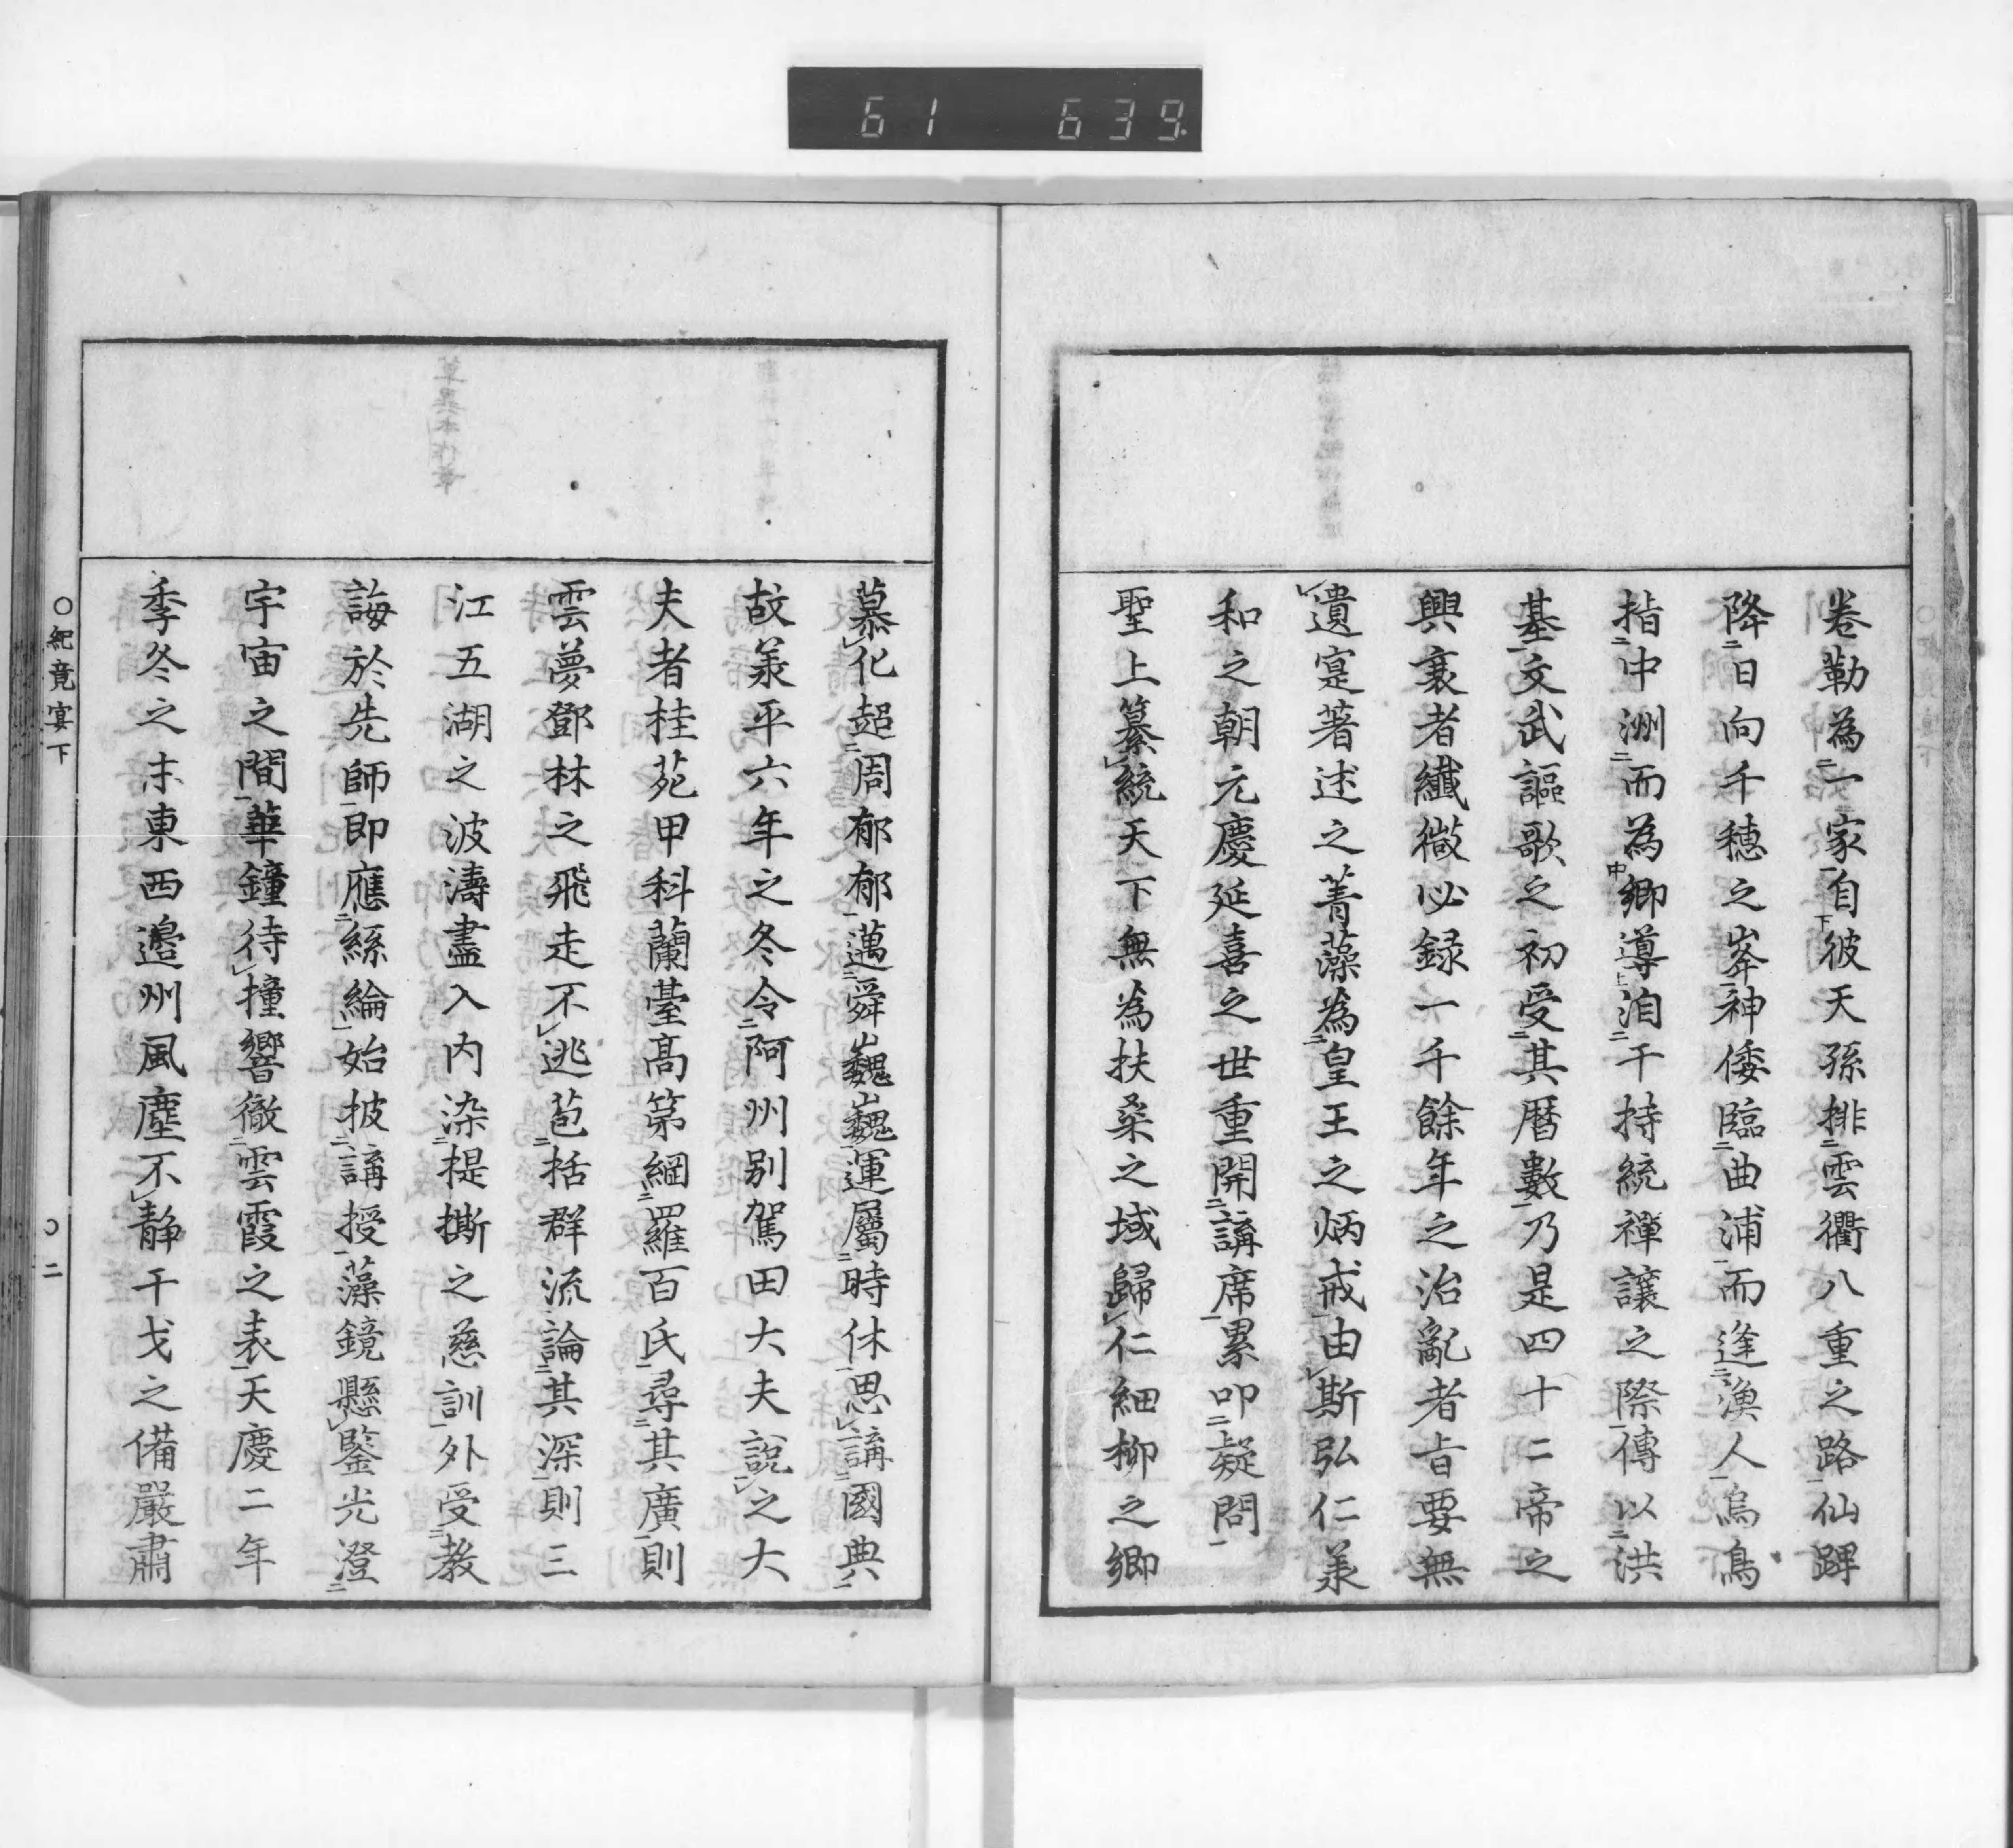 61 639
卷勒為二一家一自下彼天孫排二雲衢八重之路一仙蹕
降二日向千穗之峯一神倭臨二曲浦一而逢二漁人一烏鳥
指二中洲二而為中鄉導上洎二干持統禪讓之際一傳以二洪
基一文武謳歌之初受二其曆數一乃是四十二帝之
興衰者纖微必録一千餘年之治亂者旨要無
遺寔著述之菁藻為二皇王之炳戒一由斯弘仁羕
和之朝元慶延喜之世重開二講席一累叩二疑問一
聖上纂統天下無為扶桑之域歸仁細柳之鄉
慕化超二周郁郁一邁二舜巍巍一運屬二時休一思講二國典一
故羕平六年之冬令二阿州別駕田大夫說一之大
夫者桂苑甲科蘭臺高第網二羅百氏一尋二其廣一則
雲夢鄧林之飛走不逃苞二括群流一論二其深一則三
江五湖之波濤盡入內染二提撕之慈訓一外受二教
誨於先師一即應二絲綸一始披二講授一藻鏡懸鑒光澄二
宇宙之間一華鐘待撞響徹二雲霞之表一天慶二年
季冬之末東西邊州風塵不静干戈之備嚴肅
○紀竟宴下
○二